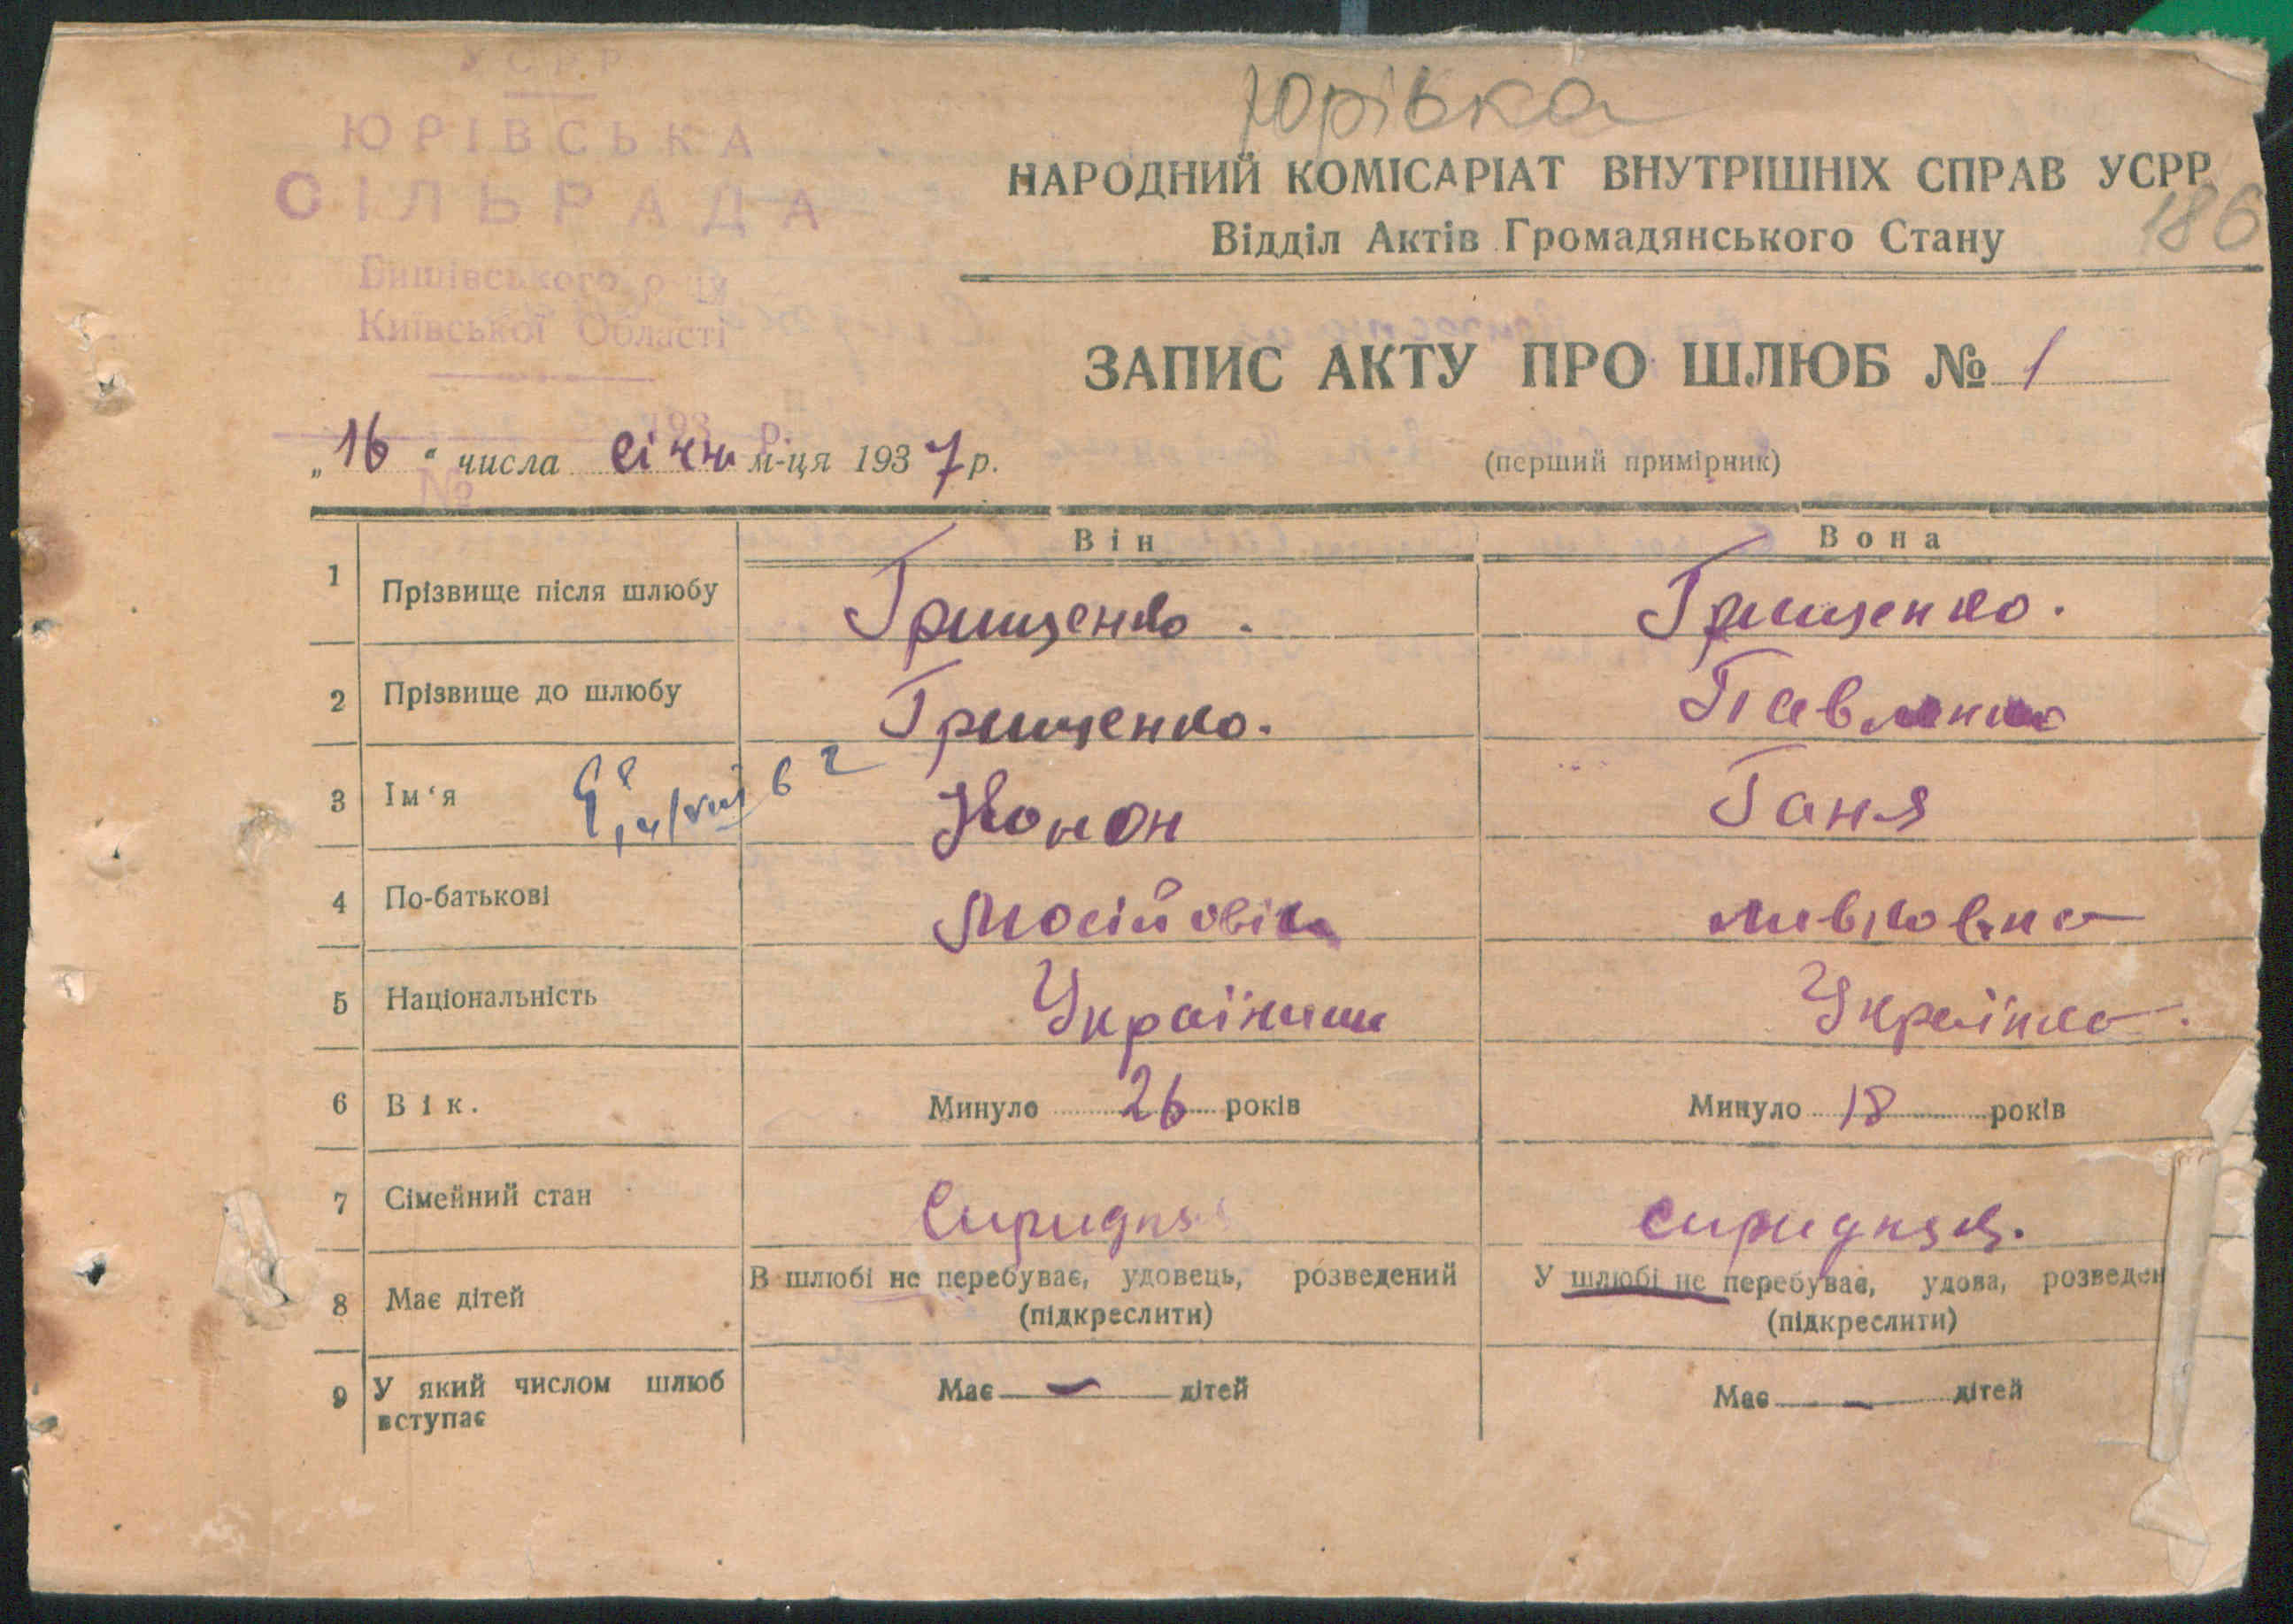 УСРР
ЮРІВСЬКА
СІЛЬРАДА
Бишівського р-ну
Київської Області
193 р.
№
Юрівка
НАРОДНИЙ КОМІСАРІАТ ВНУТРІШНІХ СПРАВ УСРР
186
Відділ Актів Громадянського Стану
ЗАПИС АКТУ ПРО ШЛЮБ № 1
„16“ числа січня м-ця 1937 р.
(перший примірник)
Він Вона
1 Прізвище після шлюбу Грищенко. Грищенко.
2 Прізвище до шлюбу Грищенко. Павленко
3 Ім‘я Конон Ганя
4 По-батькові Мосійовіч Левковна
5 Національність Українец Українка.
6 Вік. Минуло 26 років Минуло 18 років
7 Сімейний стан
8 Має дітей В шлюбі не перебуває, удовець, розведений У шлюбі не перебуває, удова, розведен
(підкреслити) (підкреслити)
9 У який числом шлюб Має — дітей Має — дітей
вступає